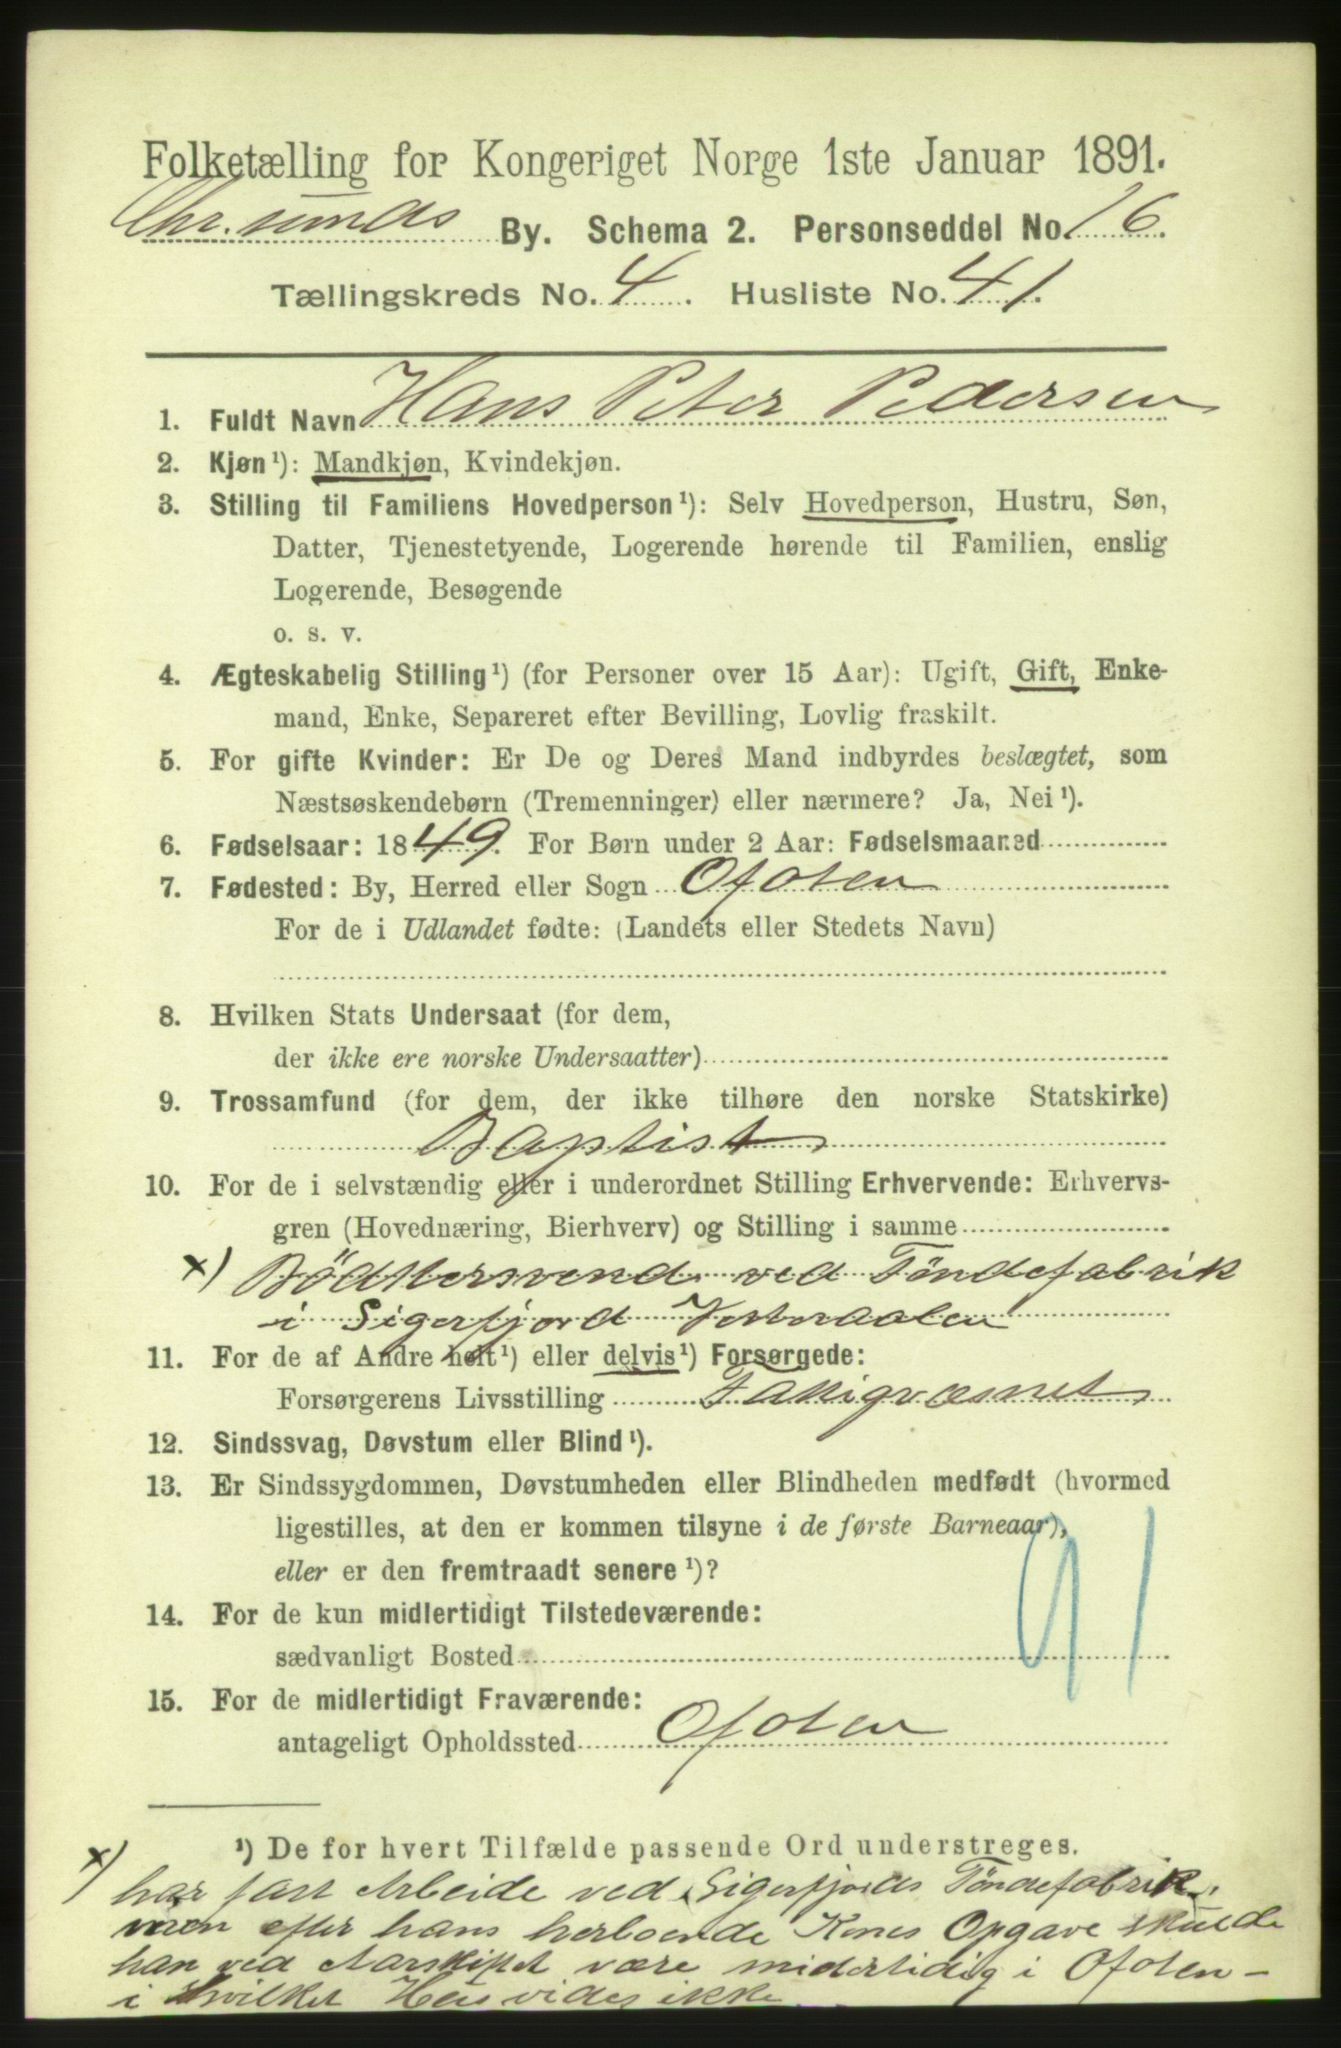 Folketælling for Kongeriget Norge 1ste Januar 1891.
Chr.sunds By. Schema 2. Personseddel No. 16.
Tællingskreds No. 4. Husliste No. 41.
1. Fuldt Navn Hans Peter Pedersen
2. Kjøn¹): Mandkjøn, Kvindekjøn.
3. Stilling til Familiens Hovedperson¹): Selv Hovedperson, Hustru, Søn,
Datter, Tjenestetyende, Logerende hørende til Familien, enslig
Logerende, Besøgende
o. s. v.
4. Ægteskabelig Stilling¹) (for Personer over 15 Aar): Ugift, Gift, Enke-
mand, Enke, Separeret efter Bevilling, Lovlig fraskilt.
5. For gifte Kvinder: Er De og Deres Mand indbyrdes beslægtet, som
Næstsøskendebørn (Tremenninger) eller nærmere? Ja, Nei¹).
6. Fødselsaar: 1849. For Børn under 2 Aar: Fødselsmaaned
7. Fødested: By, Herred eller Sogn Ofoten
For de i Udlandet fødte: (Landets eller Stedets Navn)
8. Hvilken Stats Undersaat (for dem,
der ikke ere norske Undersaatter)
9. Trossamfund (for dem, der ikke tilhøre den norske Statskirke)
Baptist
10. For de i selvstændig eller i underordnet Stilling Erhvervende: Erhvervs-
gren (Hovednæring, Bierhverv) og Stilling i samme
x) Bödkersvend ved Töndefabrik
i Sigerfjord Vesteraalen
11. For de af Andre helt¹) eller delvis¹) Forsørgede:
Forsørgerens Livsstilling Fattigvæsnet
12. Sindssvag, Døvstum eller Blind¹).
13. Er Sindssygdommen, Døvstumheden eller Blindheden medfødt (hvormed
ligestilles, at den er kommen tilsyne i de første Barneaar),
eller er den fremtraadt senere¹)?
91
14. For de kun midlertidigt Tilstedeværende:
sædvanligt Bosted
15. For de midlertidigt Fraværende:
antageligt Opholdssted Ofoten
¹) De for hvert Tilfælde passende Ord understreges.
x) har fast Arbeide ved Sigerfjords Töndefabrik,
men efter hans herboende Kones Opgave skulde
han ved Aarskiftet være midlertidig i Ofoten –
i hvilket Hei vides ikke.